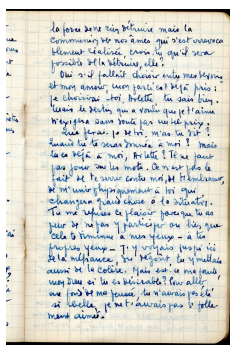 la force de ne rien détruire mais la
communion de nos âmes qui s'est irrévoca
blement réalisée crois-tu qu'il sera
possible de la détruire, elle?
Oui s'il fallait choisir entre mes devoirs
et mon amour, mon parti est déjà pris :
je choisirai toi, Arlette, tu sais bien.
mais le destin qui a voulu que je t'aime
n'exigera sans doute pas un tel prix.
Que ferai-je de toi, m'as-tu dit?
quand tu te seras donnée à moi? Mais
tu es déjà à moi, Arlette! Il ne faut
pas jouer sur les mots. Ce n'est pas le
fait de te serrer contre moi, de
de m'unir physiquement à toi qui
changera grand chose à la situation.
Tu me refuses ce plaisir parce que tu as
peur de ne pas y participer ou bien que
cela te diminue à mes yeux - à tes
propres yeux - J'y voyais jusqu'ici
de la méfiance, du dégoût, tu y mettais
aussi de la colère. Mais est-ce ma faute,
mon Dieu si tu es désirable? Pour aller
au fond de ma pensée, tu n'aurais pas été
si belle, je ne t'aurais pas si folle-
ment aimée.